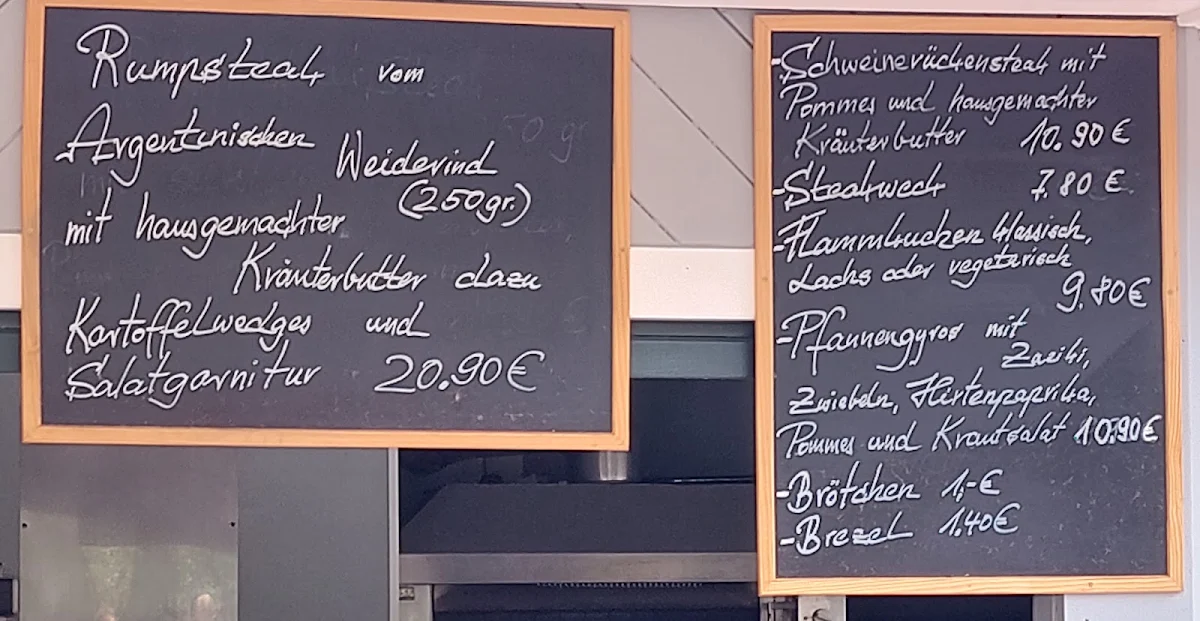 Rumpsteak vom
Argentinischen
Weiderind
(250gr.)
mit hausgemachter
Kräuterbutter dazu
Kartoffelwedges und
Salatgarnitur 20.90€
-Schweinerückensteak mit
Pommes und hausgemachter
Kräuterbutter 10.90€
-Steakweck 7.80€
-Flammkuchen klassisch,
Lachs oder vegetarisch
9.80€
-Pfannengyros mit
Zaziki,
Zwiebeln, Hirtenpaprika,
Pommes und Krautsalat 10.90€
-Brötchen 1,-€
-Brezel 1.40€